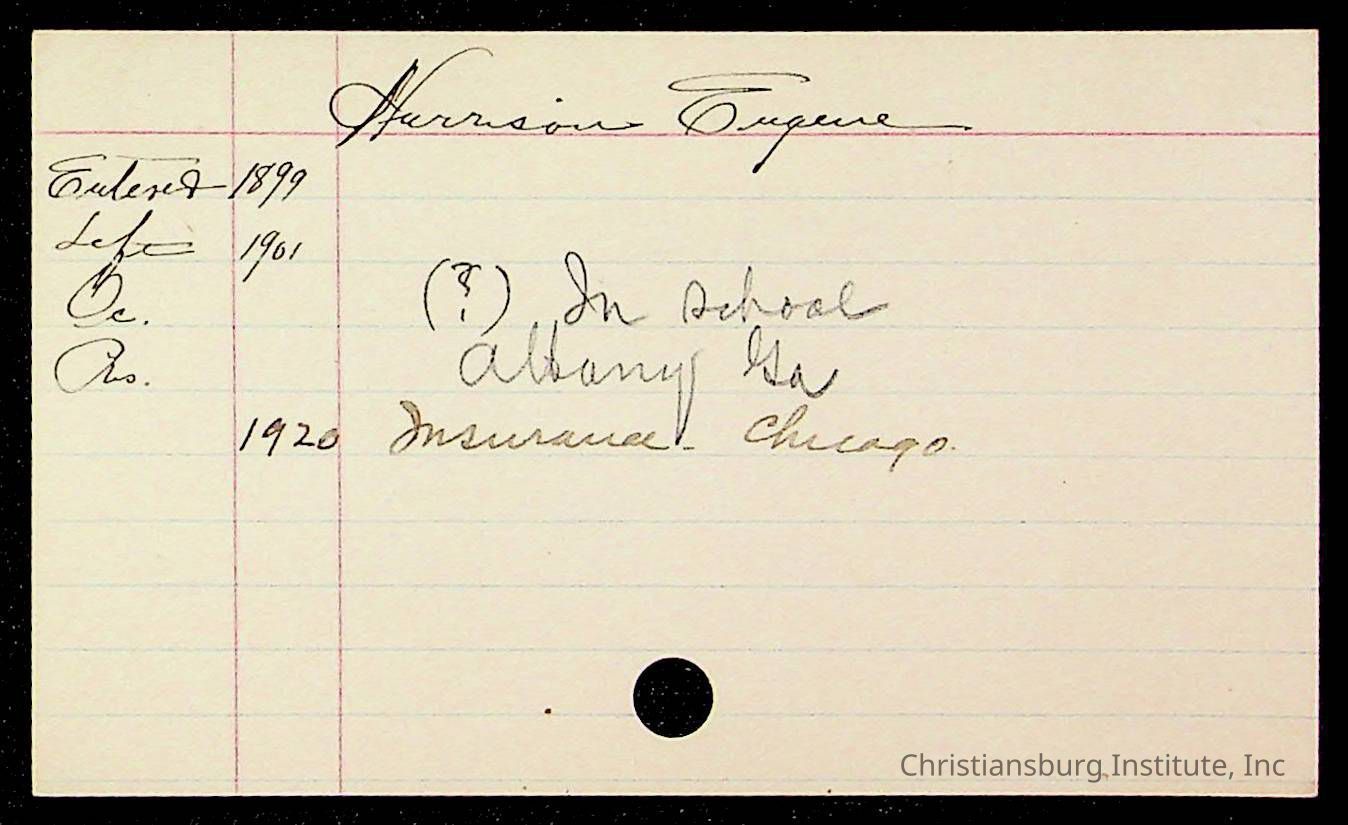 Harrison Eugene
Entered 1899
Left 1901
Oc. (?) In school
Rs. Albany Ga
1920 Insurance - Chicago.
Christiansburg Institute, Inc